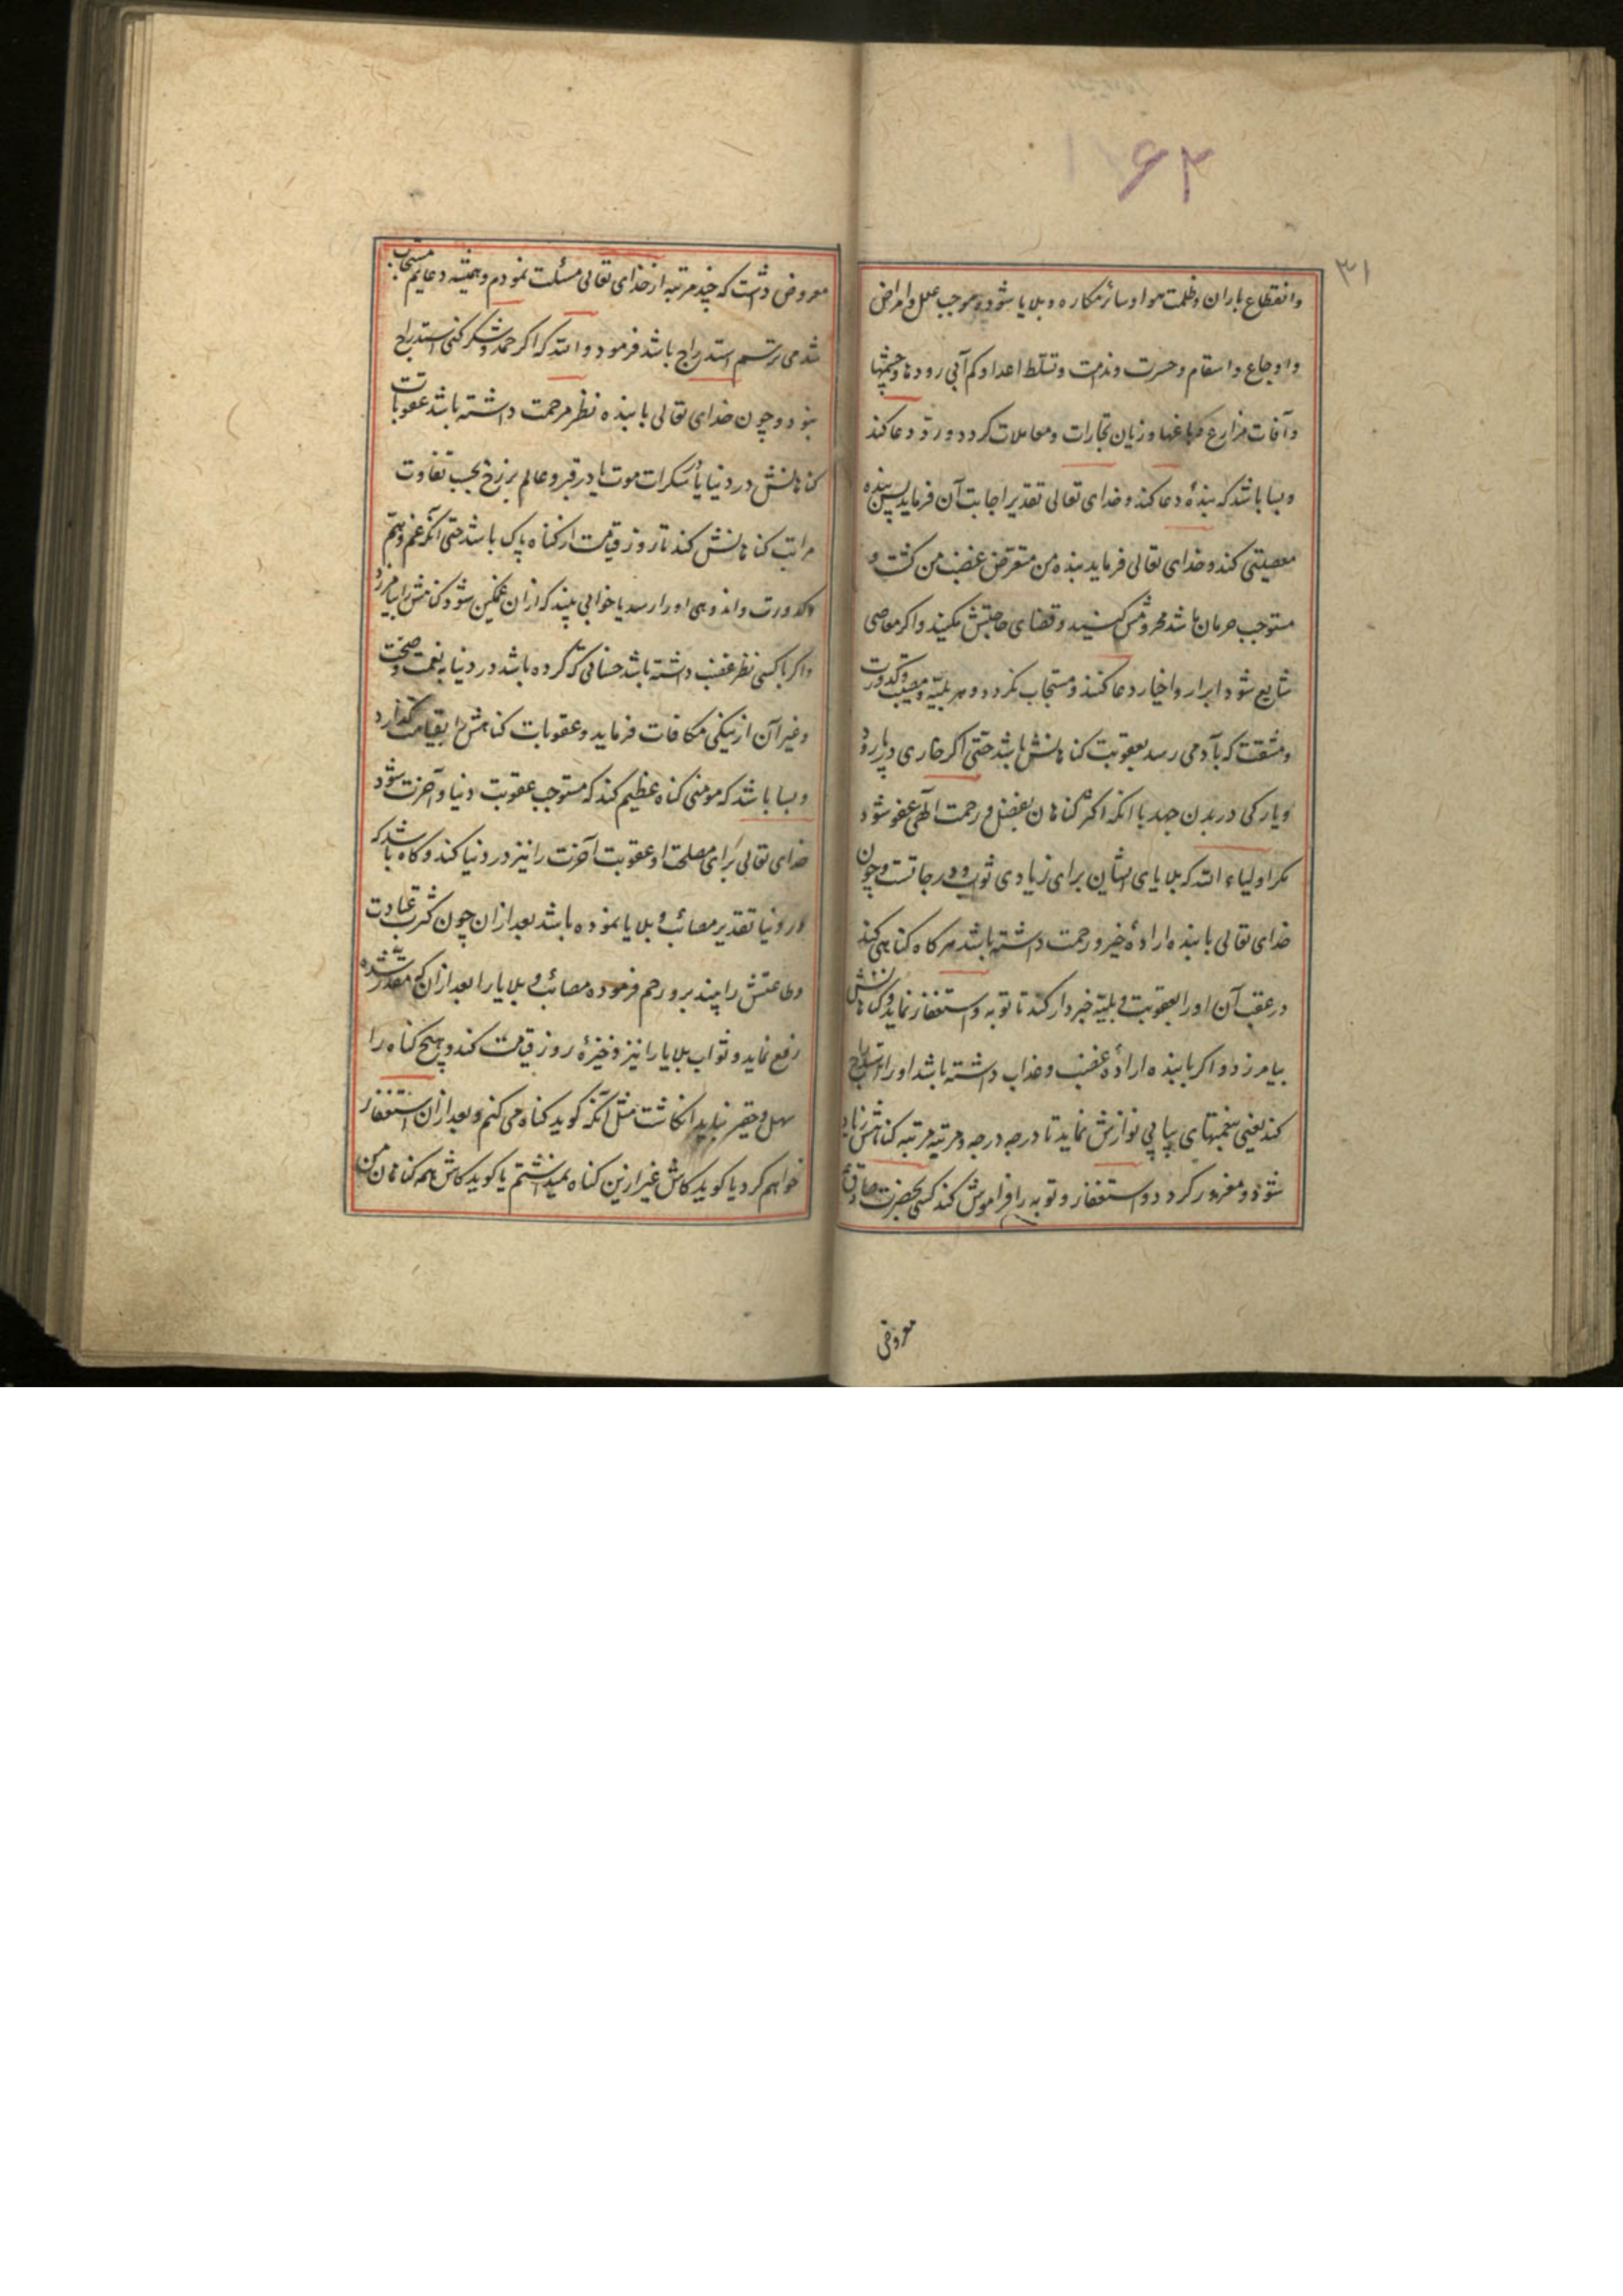 ۶۴
۳۱
وانقطاع باران وظلمت هوا وسائر مکاره وبلایا شود وموجب علل وامراض
واوجاع واسقام وحسرت وندامت وتسلط اعدا وکم آبی رودها وچشمها
وآفات مزارع وزیان تجارات ومعاملات کردد ورد دعا کند
وبسا باشد که بندهٔ دعا کند وخدای تعالی تقدیر اجابت آن فرماید پس بنده
معصیتی کند وخدای تعالی فرماید بنده من متعرض غضب من کشت و
مستوجب حرمان باشد محرومش کنید وقضای حاجتش مکنید واکر معاصی
شایع شود ابرار واخیار دعا کنند ومستجاب نکردد وهر بلیّه ومصیبت وکدورت
ومشقت که بآدمی رسد بعقوبت کناهانش باشد حتی اکر خاری در پا رود
ویا رکی در بدن جهد با انکه اکثر کناهان بفضل ورحمت الهی عفو شود
مکر اولیاء الله که بلایای ایشان برای زیادی ثواب ودرجاتست وچون
خدای تعالی با بنده ارادهٔ خیر ورحمت داشته باشد هر کاه کناهی کند
در عقب آن او را بعقوبت وبلیّه خبردار کند تا توبه واستغفار نماید وکناهانش
بیامرزد واکر با بنده ارادهٔ غضب وعذاب داشته باشد او را استدراج
کند یعنی بنعمتهای پیاپی نوازش نماید تا درجه درجه ومرتبه مرتبه کناهش زیاد
شود ومغرور کردد واستغفار وتوبه را فراموش کند کسی بحضرت صادق
معروض
معروض داشت که چند مرتبه از خدای تعالی مسئلت نمودم وهمیشه دعایم مستجاب
شد می ترسم استدراج باشد فرمود والله که اکر حمد وشکر کنی استدراج
نبود وچون خدای تعالی با بنده نظر مرحمت داشته باشد عقوبات
کناهانش در دنیا یا سکرات موت یا در قبر وعالم برزخ بحسب تفاوت
مراتب کناهانش کند تا روز قیامت از کناه پاک باشد حتی آنکه غم وهم
وکدورت واندوهی او را رسد یا خوابی بیند که ازان غمکین شود کناهش را بیامرزد
واکر با کسی نظر غضب داشته باشد حسناتی که کرده باشد در دنیا بنعمت وصحت
وغیر آن از نیکی مکافات فرماید وعقوبات کناهش را بقیامت کذارد
وبسا باشد که مومنی کناه عظیم کند که مستوجب عقوبت دنیا وآخرت شود
خدای تعالی برای مصلحت او عقوبت آخرت را نیز در دنیا کند وکاه باشد که
در دنیا تقدیر مصائب وبلایا نموده باشد بعد ازان چون کثرت عبادت
وطاعتش را بیند برو رحم فرموده مصائب وبلایا را بعد ازان که مقدر شده
رفع نماید وثواب بلایا را نیز ذخیرهٔ روز قیامت کند وهیچ کناه را
سهل وحقیر نباید انکاشت مثل آنکه کوید کناه می کنم وبعد ازان استغفار
خواهم کرد یا کوید کاش غیر ازین کناه نمیداشتم یا کوید کاش همه کناهان من